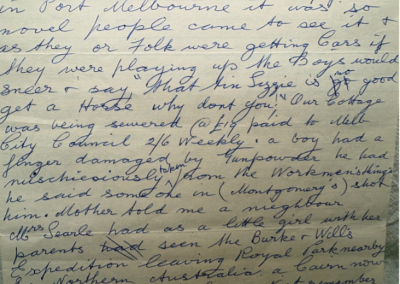 in Port Melbourne it was so
novel people came to see it &
as they or Folk were getting Cars if
they were playing up the Boys would
sneer & say "that tin Lizzie is no good
get a Horse why dont you." Our Cottage
was being sewered @ paid to Melb
City Council 2/6 Weekly. a boy had a
finger damaged by Gunpowder he had
mischiesiorisly taken from the Workmens things
he said some one in (Montgomery's) shot
him. Mother told me a neighbour
Mrs Searle had as a little girl with her
parents had seen the Burke & Wills
Expedition leaving Royal Park nearby
Northern Australia. a Cairn now
remember